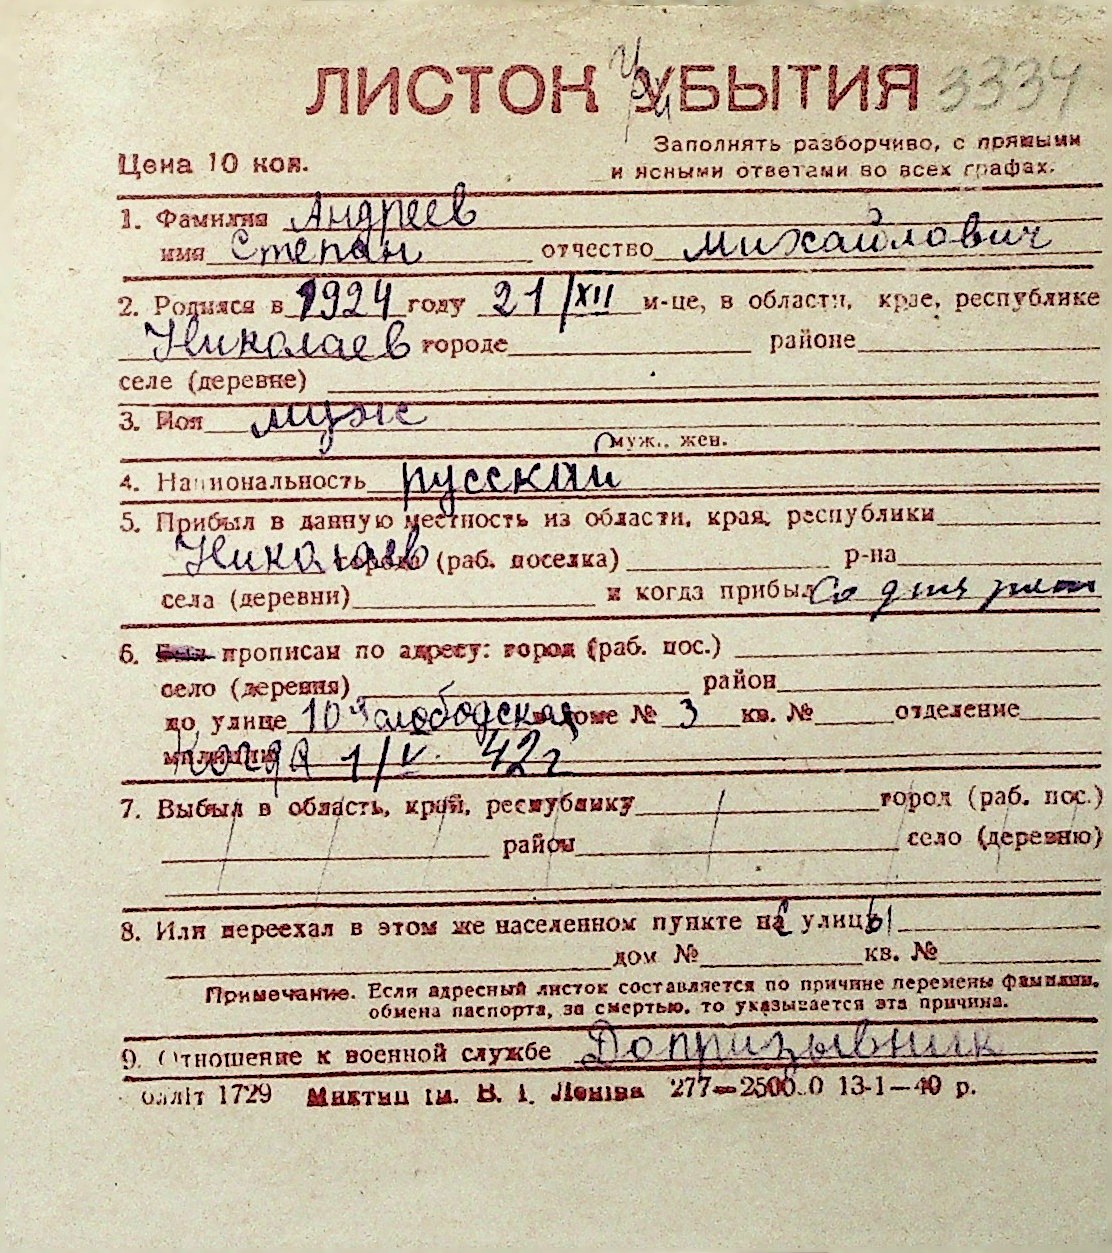 ЛИСТОК УБЫТИЯ 3334
Цена 10 коп.
Заполнять разборчиво, с прямыми
и ясными ответами во всех графах.
1. Фамилия Андреев
имя Степан отчество Михайлович
2. Родился в 1924 году 21/XII м-це, в области, крае, республике
Николаев городе районе
селе (деревне)
3. Пол муж
муж., жен.
4. Национальность русский
5. Прибыл в данную местность из области, края, республики
Николаев города (раб. поселка) р-на
села (деревни) и когда прибыл Со дня рож
6. Был прописан по адресу: город (раб. пос.)
село (деревня) район
по улице 10 Слободская в доме № 3 кв. № отделение
милиции Когда 1/V. 42 г
7. Выбыл в область, край, республику город (раб. пос.)
район село (деревню)
8. Или переехал в этом же населенном пункте на с улицы
дом № кв. №
Примечание. Если адресный листок составляется по причине перемены фамилии,
обмена паспорта, за смертью, то указывается эта причина.
9. Отношение к военной службе Допризывник
олліт 1729 Миктип ім. В. І. Леніна 277—2500.0 13-1—40 р.